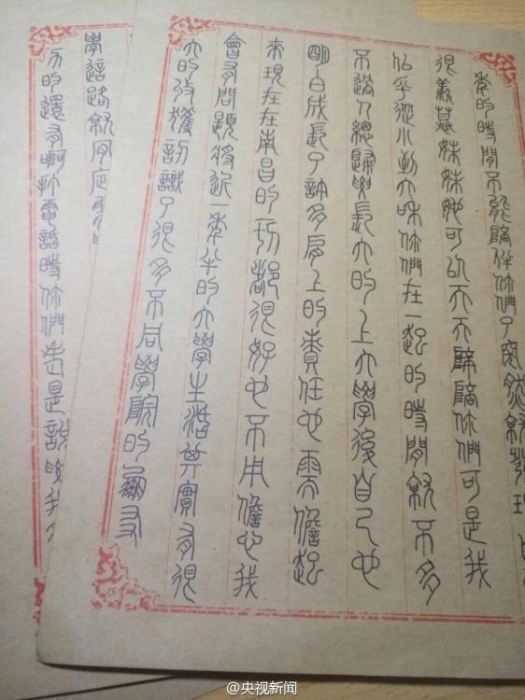 年的時間不能陪伴你們了突然就發現
很羨慕妹妹她可以天天陪陪你們可是我
似乎從小到大和你們在一起的時間就不多
不過人總歸要長大的上大學後自己也
明白成長了許多肩上的責任也需擔起
來現在在南昌的都很好也不用擔心我
會有問題將近一年半的大學生活其實有很
大的收獲認識了很多不同學院的朋友
學這路就肯定
方的還有啊打電話時你們老是說我
@央视新闻